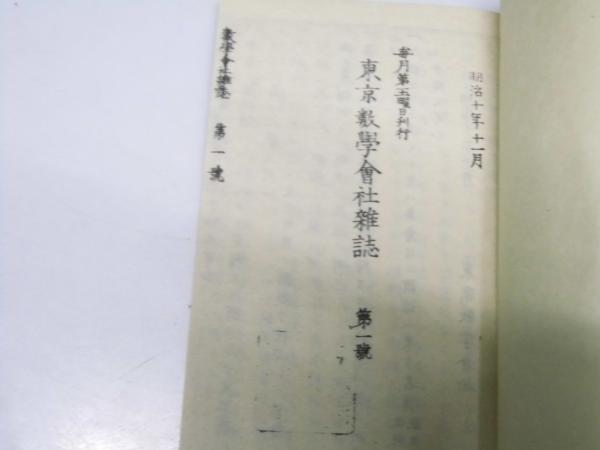 明治十年十一月
毎月第一土曜日刊行
東京數學會社雜誌
第一號
數學會社雜誌 第一號